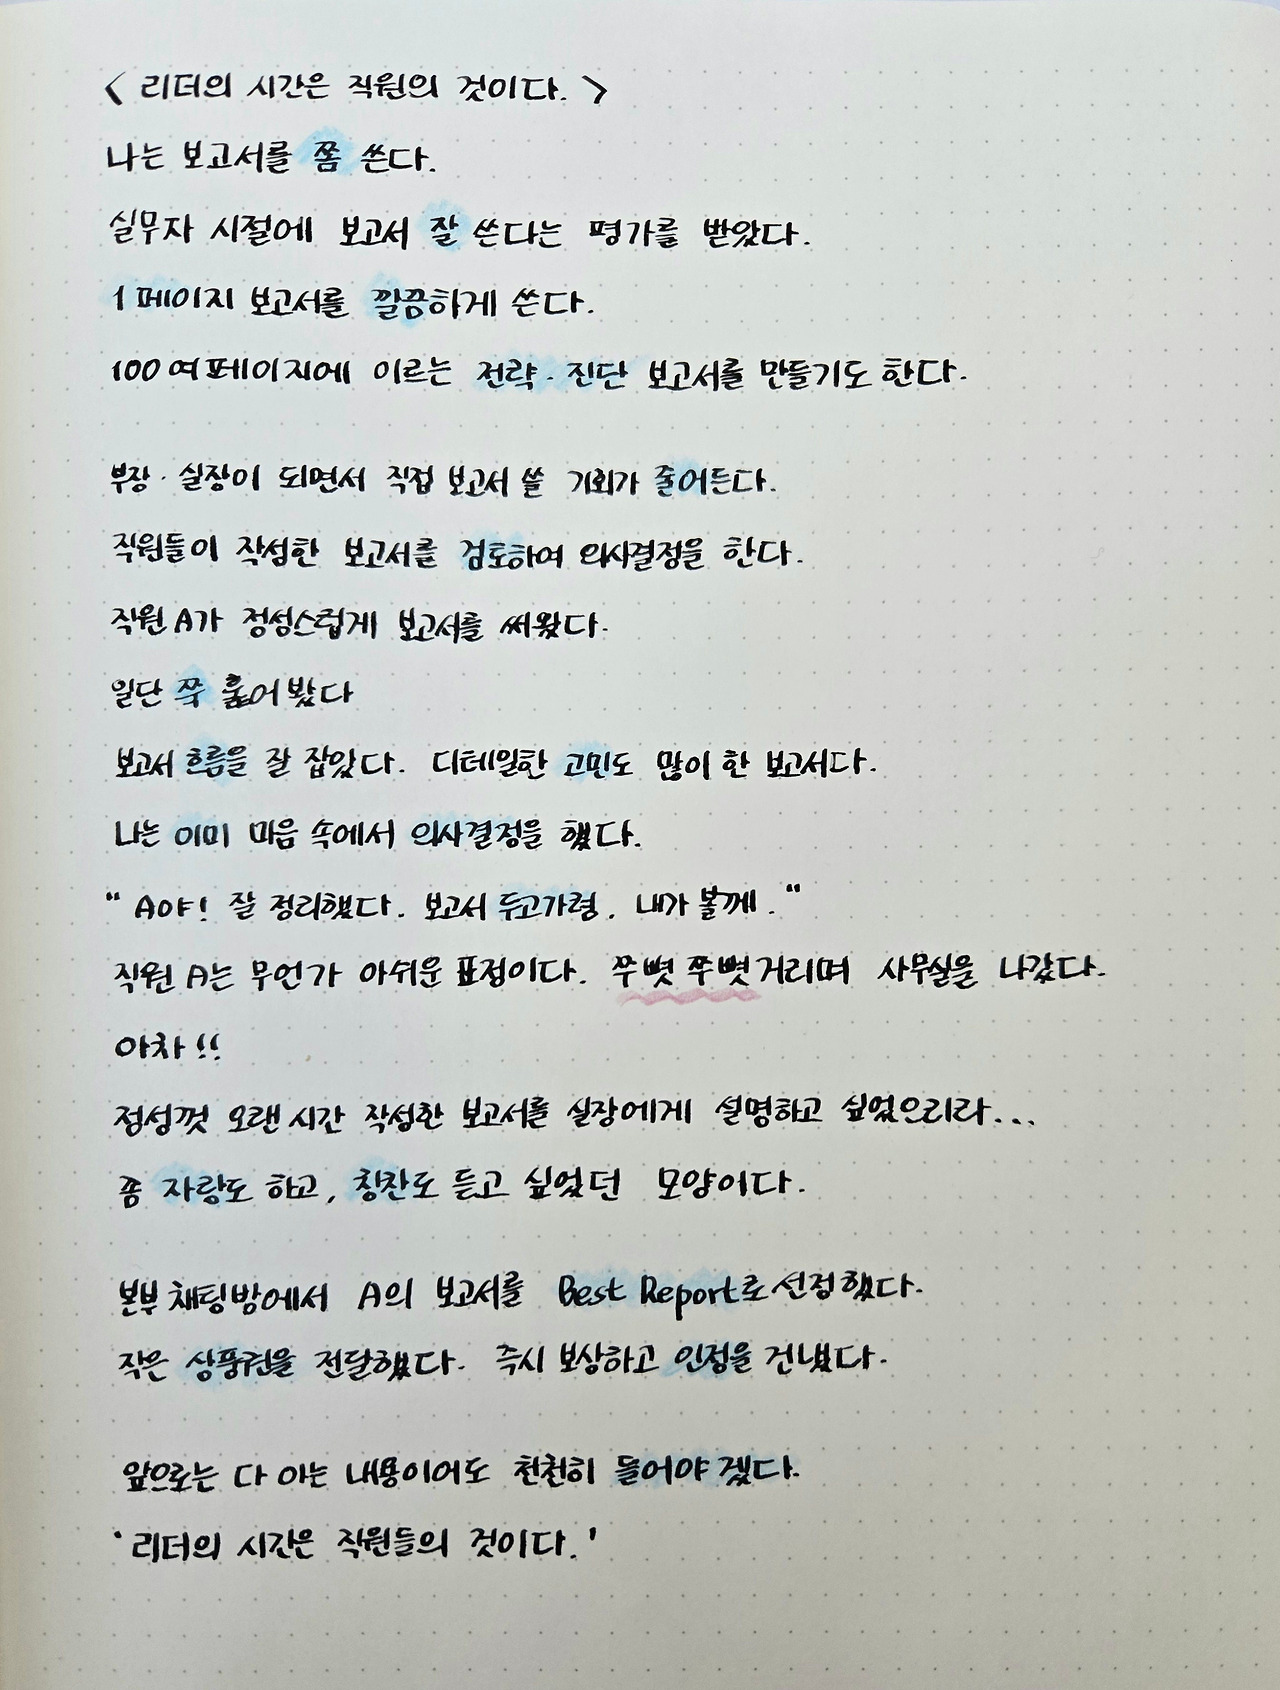 < 리더의 시간은 직원의 것이다. >
나는 보고서를 쫌 쓴다.
실무자 시절에 보고서 잘 쓴다는 평가를 받았다.
1페이지 보고서를 깔끔하게 쓴다.
100여페이지에 이르는 전략·진단 보고서를 만들기도 한다.
부장·실장이 되면서 직접 보고서 쓸 기회가 줄어든다.
직원들이 작성한 보고서를 검토하여 의사결정을 한다.
직원 A가 정성스럽게 보고서를 써왔다.
일단 쭉 훑어봤다
보고서 흐름을 잘 잡았다. 디테일한 고민도 많이 한 보고서다.
나는 이미 마음 속에서 의사결정을 했다.
“ A야! 잘 정리했다. 보고서 두고가렴. 내가 볼께. “
직원 A는 무언가 아쉬운 표정이다. 쭈뼛쭈뼛거리며 사무실을 나갔다.
아차!!
정성껏 오랜시간 작성한 보고서를 실장에게 설명하고 싶었으리라...
쫌 자랑도 하고, 칭찬도 듣고 싶었던 모양이다.
본부 채팅방에서 A의 보고서를 Best Report로 선정했다.
작은 상품권을 전달했다. 즉시 보상하고 인정을 건넸다.
앞으로는 다 아는 내용이어도 천천히 들어야겠다.
‘리더의 시간은 직원들의 것이다.’